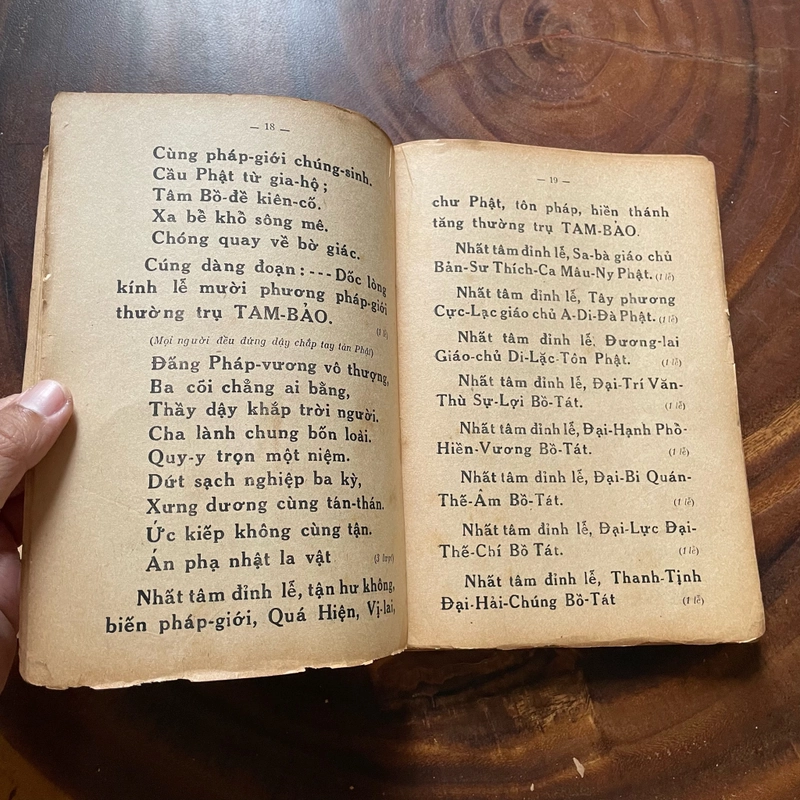 — 18 —
Cùng pháp-giới chúng-sinh.
Cầu Phật từ gia-hộ ;
Tâm Bồ-đề kiên-cố.
Xa bề khổ sông mê.
Chóng quay về bờ giác.
Cúng dàng đoạn : --- Dốc lòng
kính lễ mười phương pháp-giới
thường trụ TAM-BẢO.
(Mọi người đều đứng dậy chắp tay tán Phật)
Đấng Pháp-vương vô thượng,
Ba cõi chẳng ai bằng,
Thầy dậy khắp trời người.
Cha lành chung bốn loài.
Quy-y trọn một niệm.
Dứt sạch nghiệp ba kỳ,
Xưng dương cùng tán-thán.
Ức kiếp không cùng tận.
Án phạ nhật la vật (3 lượt)
Nhất tâm đỉnh lễ, tận hư không,
biến pháp-giới, Quá Hiện, Vị-lai,
— 19 —
chư Phật, tôn pháp, hiền thánh
tăng thường trụ TAM-BẢO.
Nhất tâm đỉnh lễ, Sa-bà giáo chủ
Bản-Sư Thích-Ca Mâu-Ny Phật. (1 lễ)
Nhất tâm đỉnh lễ, Tây phương
Cực-Lạc giáo chủ A-Di-Đà Phật. (1 lễ)
Nhất tâm đỉnh lễ, Đương-lai
Giáo-chủ Di-Lặc-Tôn Phật. (1 lễ)
Nhất tâm đỉnh lễ, Đại-Trí Văn-
Thù Sự-Lợi Bồ-Tát. (1 lễ)
Nhất tâm đỉnh lễ, Đại-Hạnh Phổ-
Hiền-Vương Bồ-Tát. (1 lễ)
Nhất tâm đỉnh lễ, Đại-Bi Quán-
Thế-Âm Bồ-Tát. (1 lễ)
Nhất tâm đỉnh lễ, Đại-Lực Đại-
Thế-Chí Bồ Tát. (1 lễ)
Nhất tâm đỉnh lễ, Thanh-Tịnh
Đại-Hải-Chúng Bồ-Tát (1 lễ)